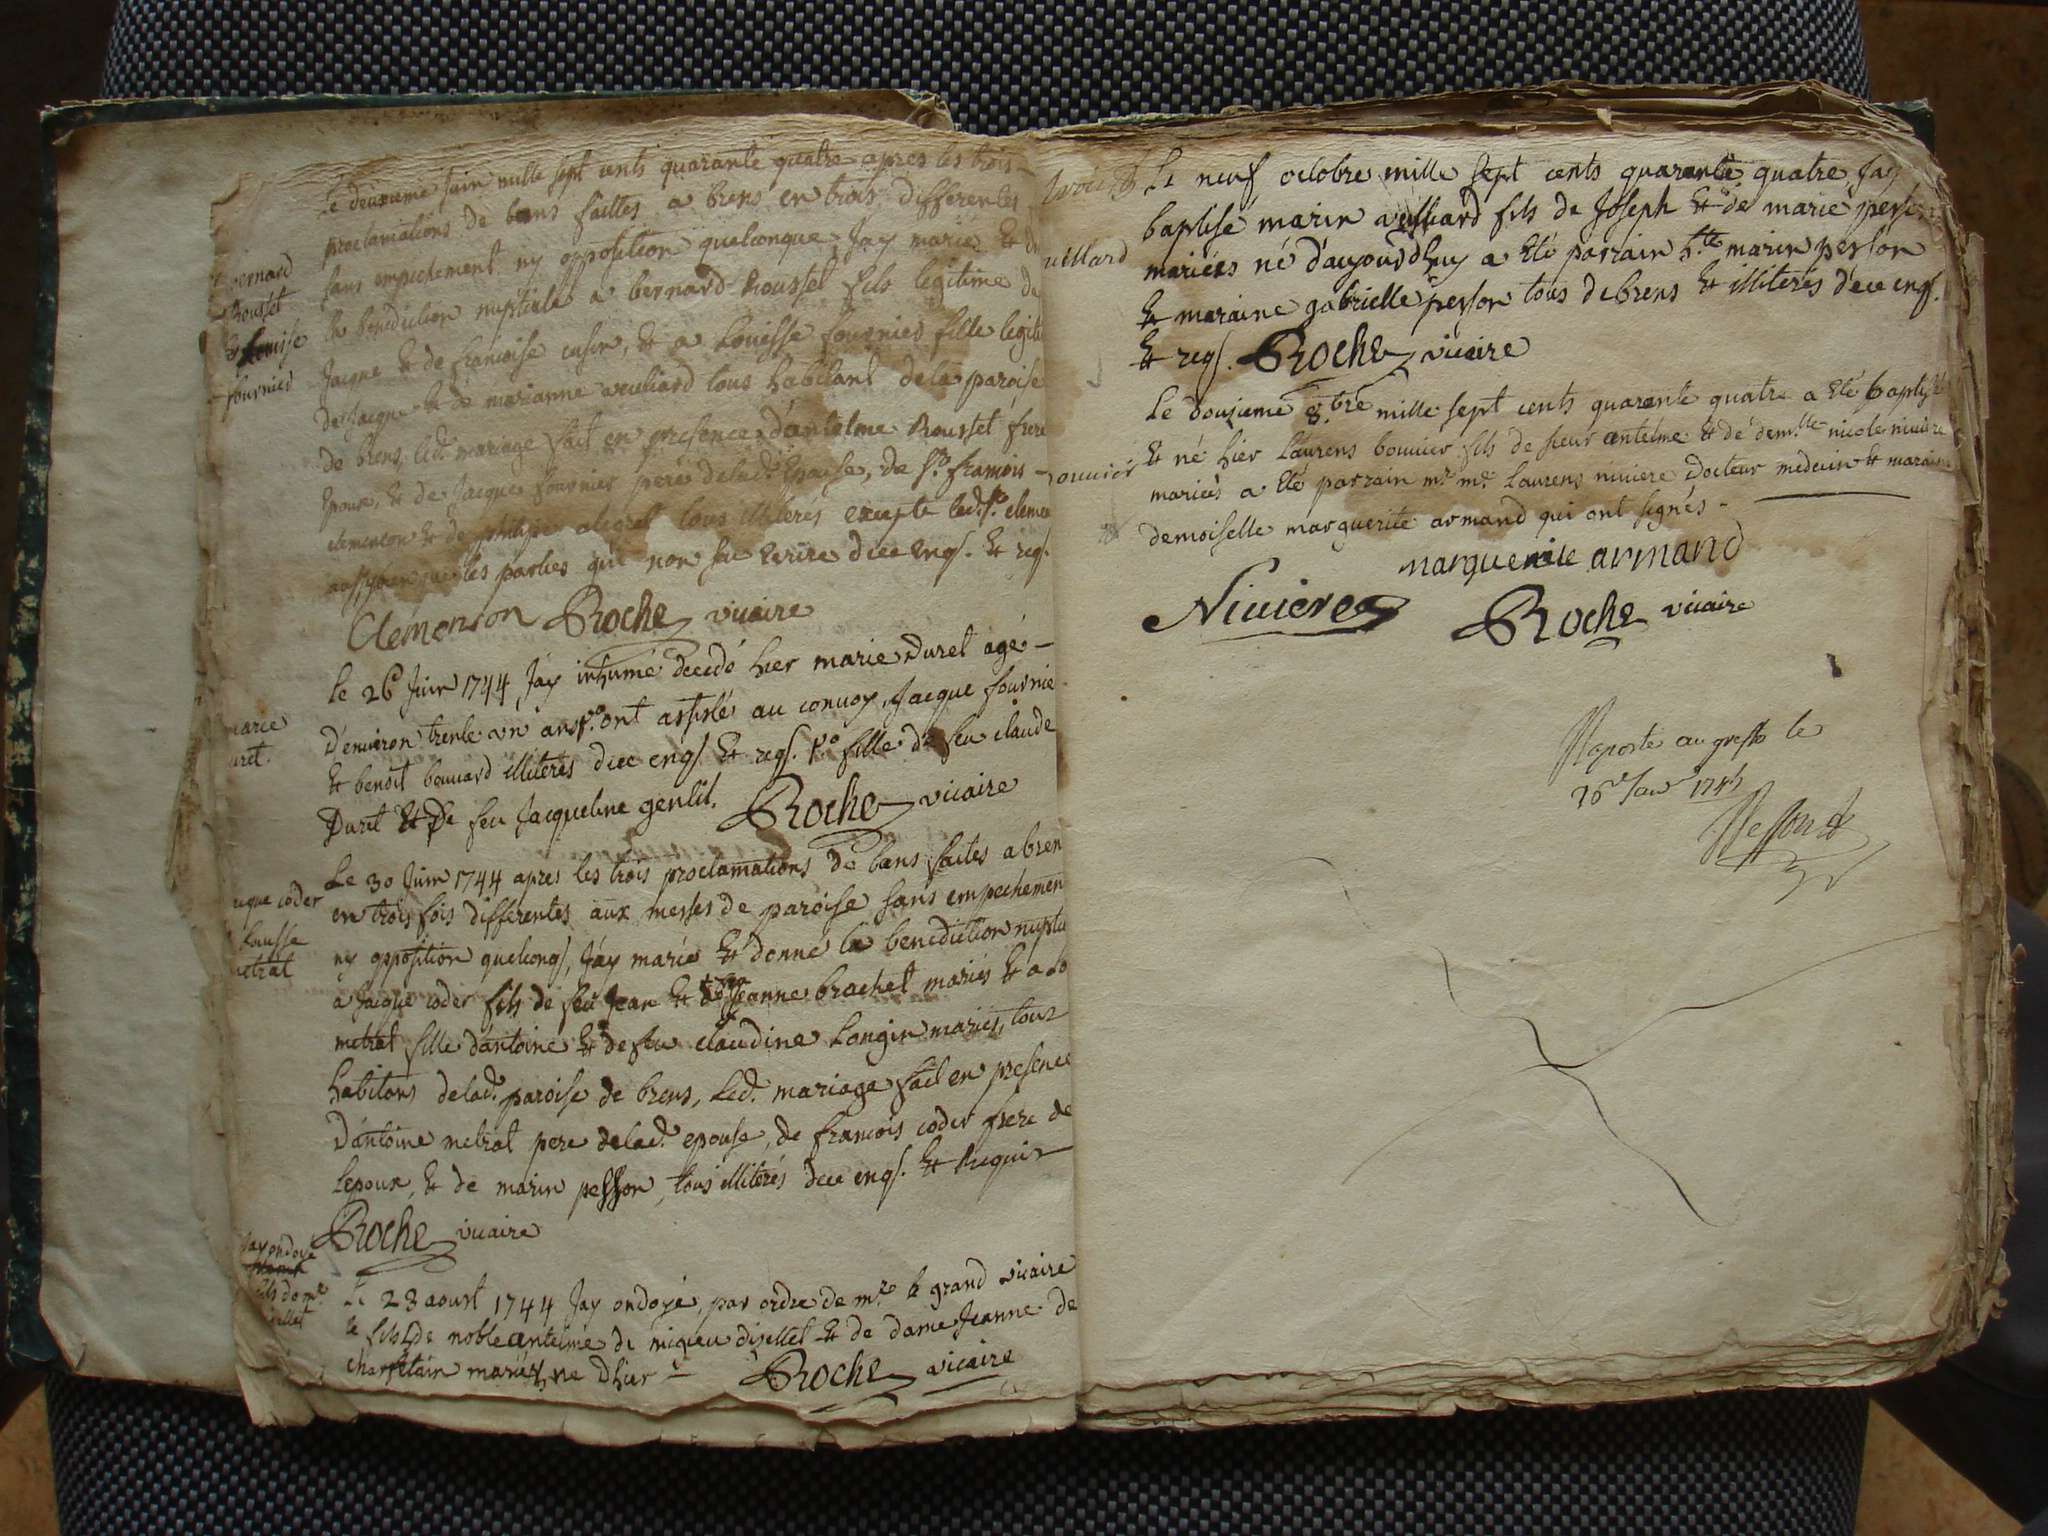 Le deuxieme Juin mille sept cents quarante quatre apres les trois
proclamations de bans faittes a brens en trois differentes
sans empechement ny opposition quelconque Jay mariés et
la benediction nuptiale a bernard Rousset fils legitime de
Jacque et de francoise cusin, et a Louisse fournier fille legit
de Jacque et de marianne veulliard tous habitant de la paroise
de brens, led. mariage fait en presence d'antelme Rousset frere
Epoux, et de Jacque fournier pere delad. Epouse, de Sr. francois
clemencon et de philipe alegret tous illiteres excepte led. Sr. clemen
les parties qui non sceu Ecrire dece enqs. et reqs.
Clemenson Roche vicaire
bernard
Rousset
et Louisse
fournier
Le 26 Juin 1744 Jay inhumé decedé hier marie Duret agé
D'environ trente un ans ont assisté au convoy, Jacque fournie
et benoit bouvard illiterés dece enqs. et reqs. fille de feu claude
Duret et De feu Jacqueline gentil. Roche vicaire
marie
uret.
Le 30 Juin 1744 apres les trois proclamations de bans faites a bren
en trois fois differentes aux messes de paroise sans empechemen
ny opposition quelconqs, Jay mariés et donné la benediction nuptia
a Jacque coder fils de feu Jean et de Jeanne brachet mariés et a
metrat fille d'antoine et de feu claudine Longin mariés, tous
habitans delad. paroise de brens, Led. mariage fait en presence
D'antoine metrat pere delad. epouse, de francois coder frere de
Lepoux, et de marin person, tous illiterés dece enqs. et Requis
Roche vicaire
cque coder
Lousse
etrat
Le 23 aoust 1744 Jay ondoyé, par ordre de mr. le grand vicaire
le fils de noble antelme de migieu disellet et de dame Jeanne de
mariés, ne dhier Roche vicaire
Jay ondoyé
fils de mr
sellet
Le neuf octobre mille sept cents quarante quatre Jay
baptise marin veulliard fils de Joseph et de marie person
mariées né d'aujourdhuy a eté parrain marin person
et maraine gabrielle person tous de brens et illiterés dece enqs.
et reqs. Roche vicaire
uillard
Le dousieme 8.bre mille sept cents quarante quatre a eté baptisé
et né hier Laurens bouvier fils de sieur antelme et de dem.lle nicole niviere
mariés a eté parrain mr. me. Laurens niviere Docteur medecin et maraine
demoiselle marguerite armand qui ont signés
marguerite armand
Niviere Roche vicaire
ouvier
Raporté au greffe le
26e Janr 1745